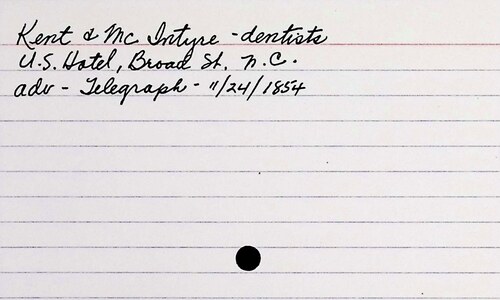 Kent & Mc Intyre - dentists
U.S. Hotel, Broad St. N.C.
adv - Telegraph - 11/24/1854